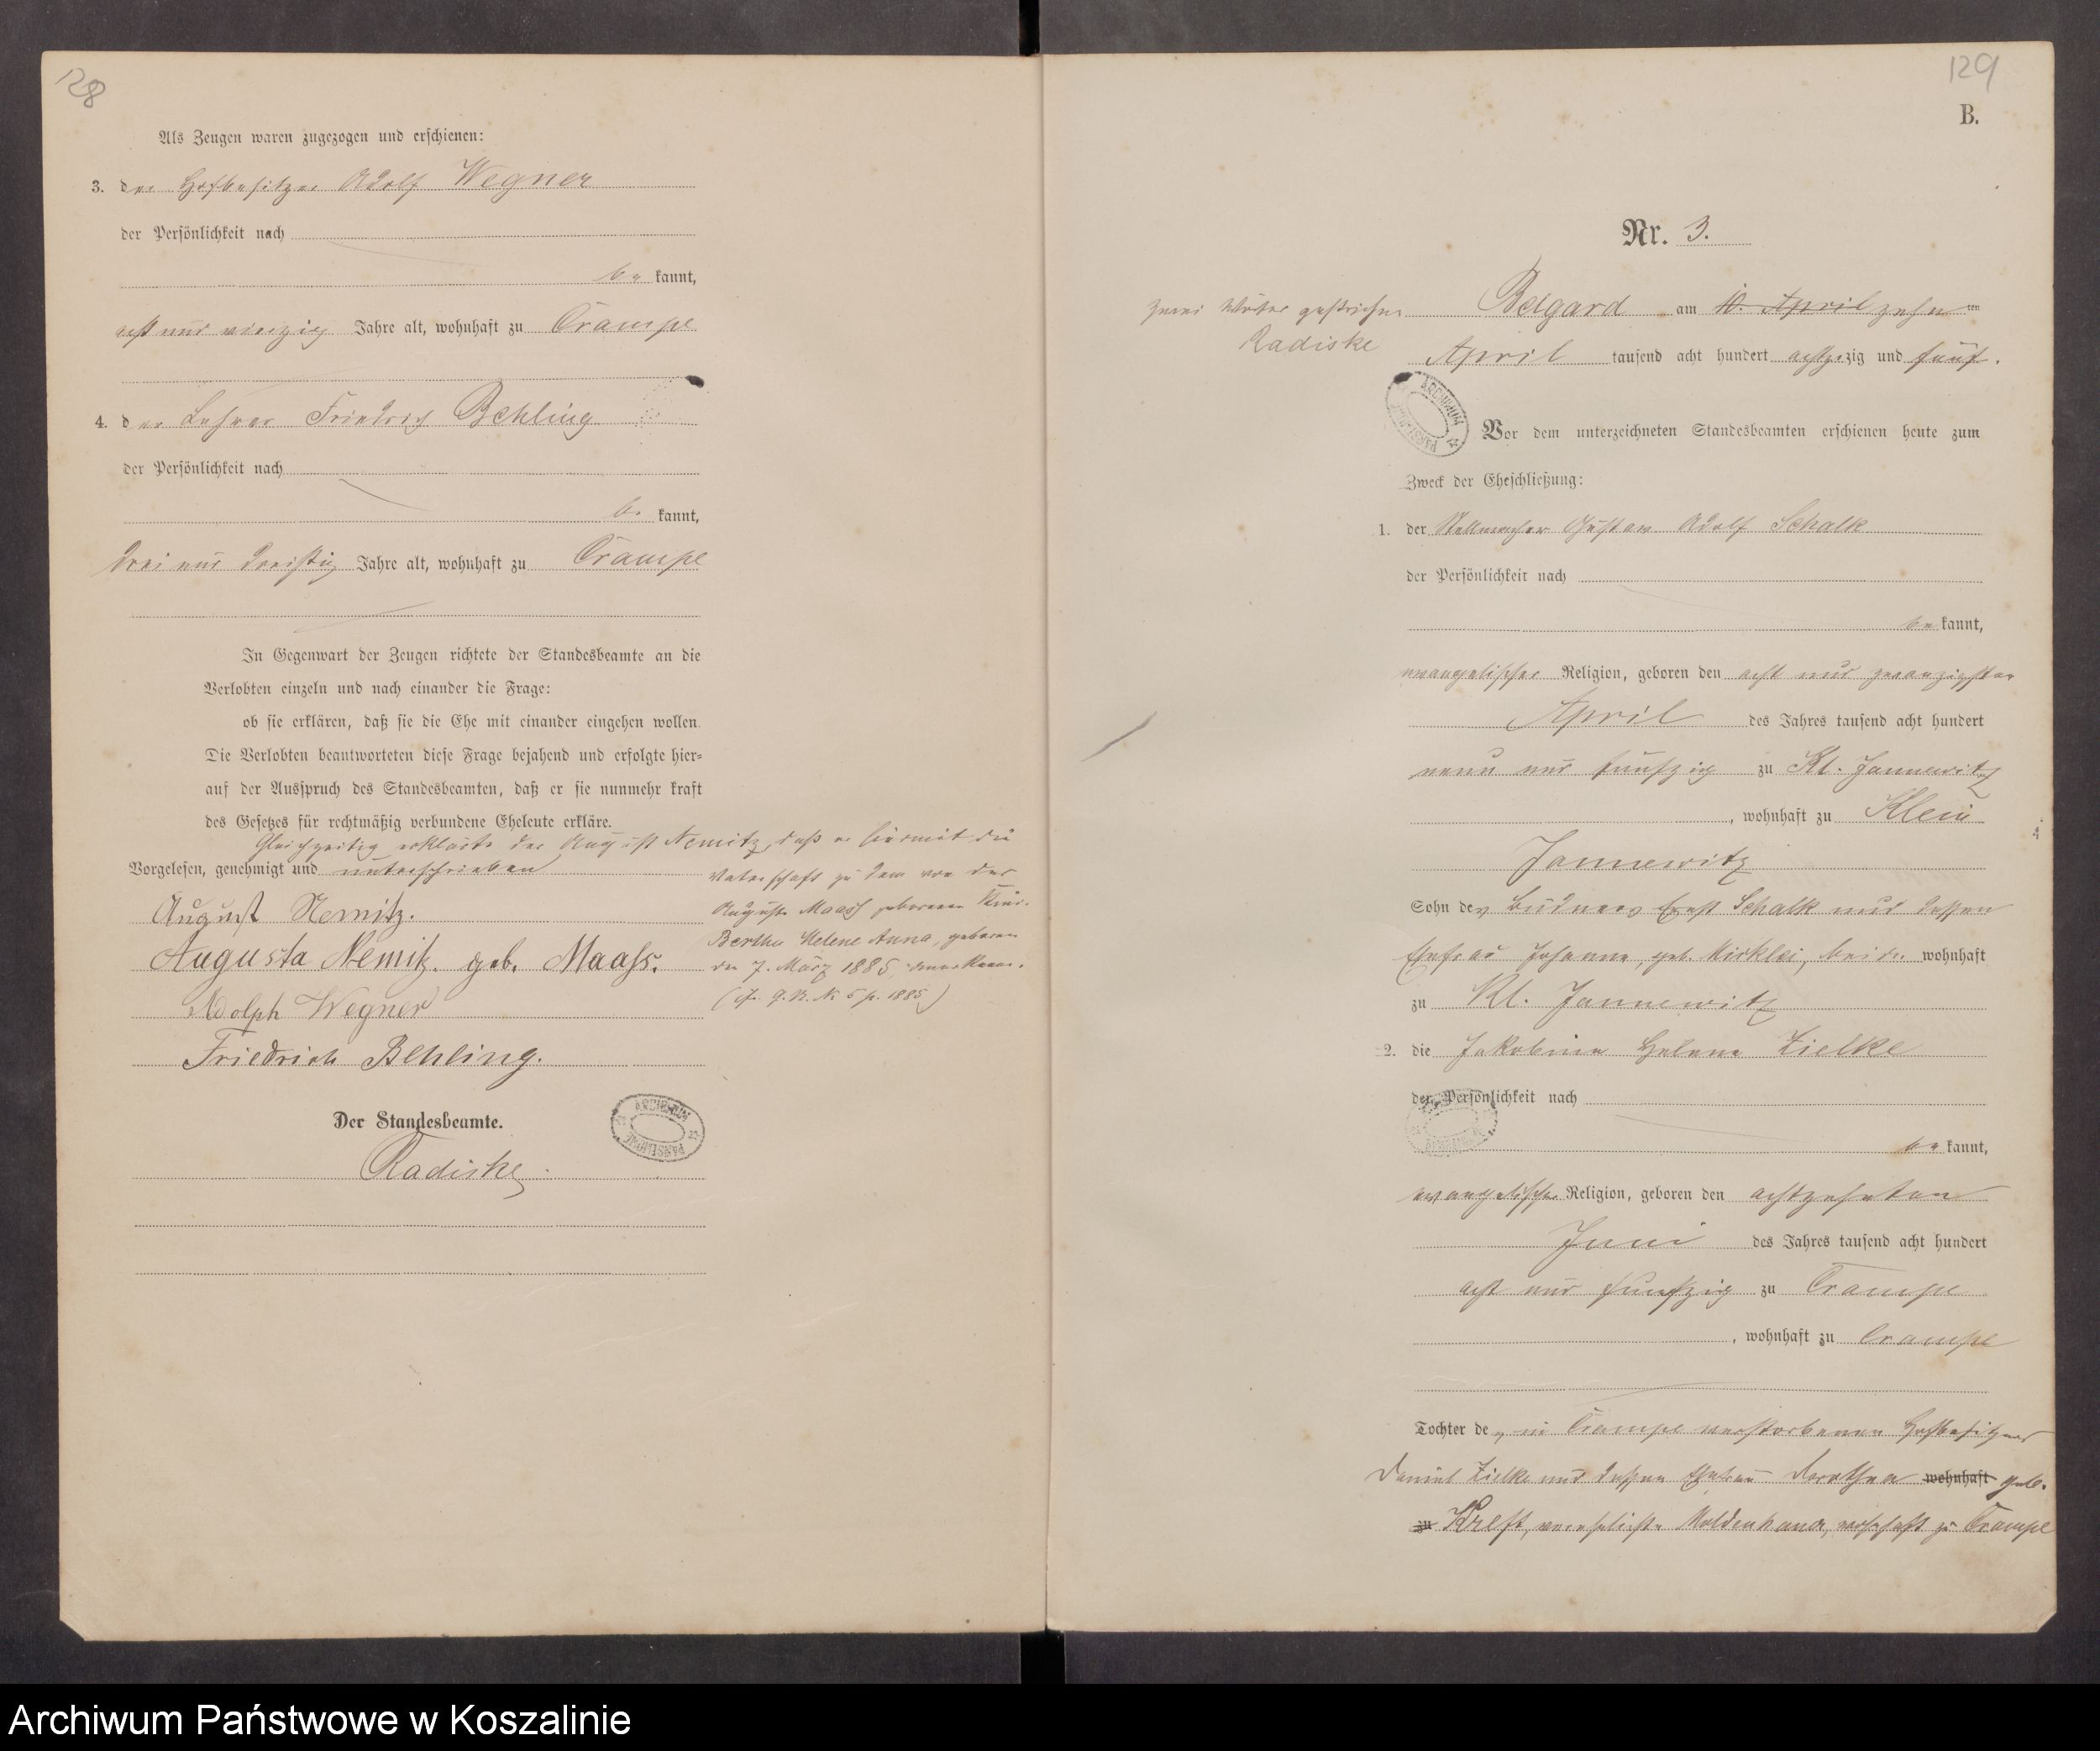 128
Als Zeugen waren zugezogen und erschienen:
3. der Hofbesitzer Adolf Wegner
der Persönlichkeit nach
be kannt,
acht und vierzig Jahre alt, wohnhaft zu Crampe
4. der Lehrer Friedrich Behling
der Persönlichkeit nach
be kannt,
drei und dreißig Jahre alt, wohnhaft zu Crampe
In Gegenwart der Zeugen richtete der Standesbeamte an die
Verlobten einzeln und nach einander die Frage:
ob sie erklären, daß sie die Ehe mit einander eingehen wollen.
Die Verlobten beantworteten diese Frage bejahend und erfolgte hier-
auf der Ausspruch des Standesbeamten, daß er sie nunmehr kraft
des Gesetzes für rechtmäßig verbundene Eheleute erkläre.
Gleichzeitig erklärte der August Nemitz, daß er hiermit die
Vaterschaft zu dem von der
Auguste Maass geborenen Kinde
Bertha Helene Anna, geboren
den 7. März 1885, anerkenne.
(cfr. G. R. N 5 p. 1885)
Vorgelesen, genehmigt und unterschrieben
August Nemitz.
Augusta Nemitz. geb. Maaß.
Adolph Wegner
Friedrich Behling.
Der Standesbeamte.
Radiske
ARCHIWUM PAŃSTWOWE
129
B.
Nr. 3.
zwei Wörter gestrichen
Radiske
Belgard am 10. April zehnten
April tausend acht hundert achtzig und fünf.
ARCHIWUM PAŃSTWOWE
Vor dem unterzeichneten Standesbeamten erschienen heute zum
Zweck der Eheschließung:
1. der Stellmacher Gustav Adolf Schalk
der Persönlichkeit nach
be kannt,
evangelischer Religion, geboren den acht und zwanzigsten
April des Jahres tausend acht hundert
neun und fünfzig zu Kl. Jannewitz
, wohnhaft zu Klein
Jannewitz
Sohn des Büdners Ernst Schalk und dessen
Ehefrau Johanna, geb. Mirklei, beide wohnhaft
zu Kl. Jannewitz
2. die Jakobine Helene Zielke
der Persönlichkeit nach
be kannt,
evangelischer Religion, geboren den achtzehnten
Juni des Jahres tausend acht hundert
acht und fünfzig zu Crampe
, wohnhaft zu Crampe
Tochter des in Crampe verstorbenen Hofbesitzers
Daniel Zielke und dessen Ehefrau Dorothea wohnhaft geb.
zu Kreft, verehelichte Moldenhauer, wohnhaft zu Crampe
Archiwum Państwowe w Koszalinie